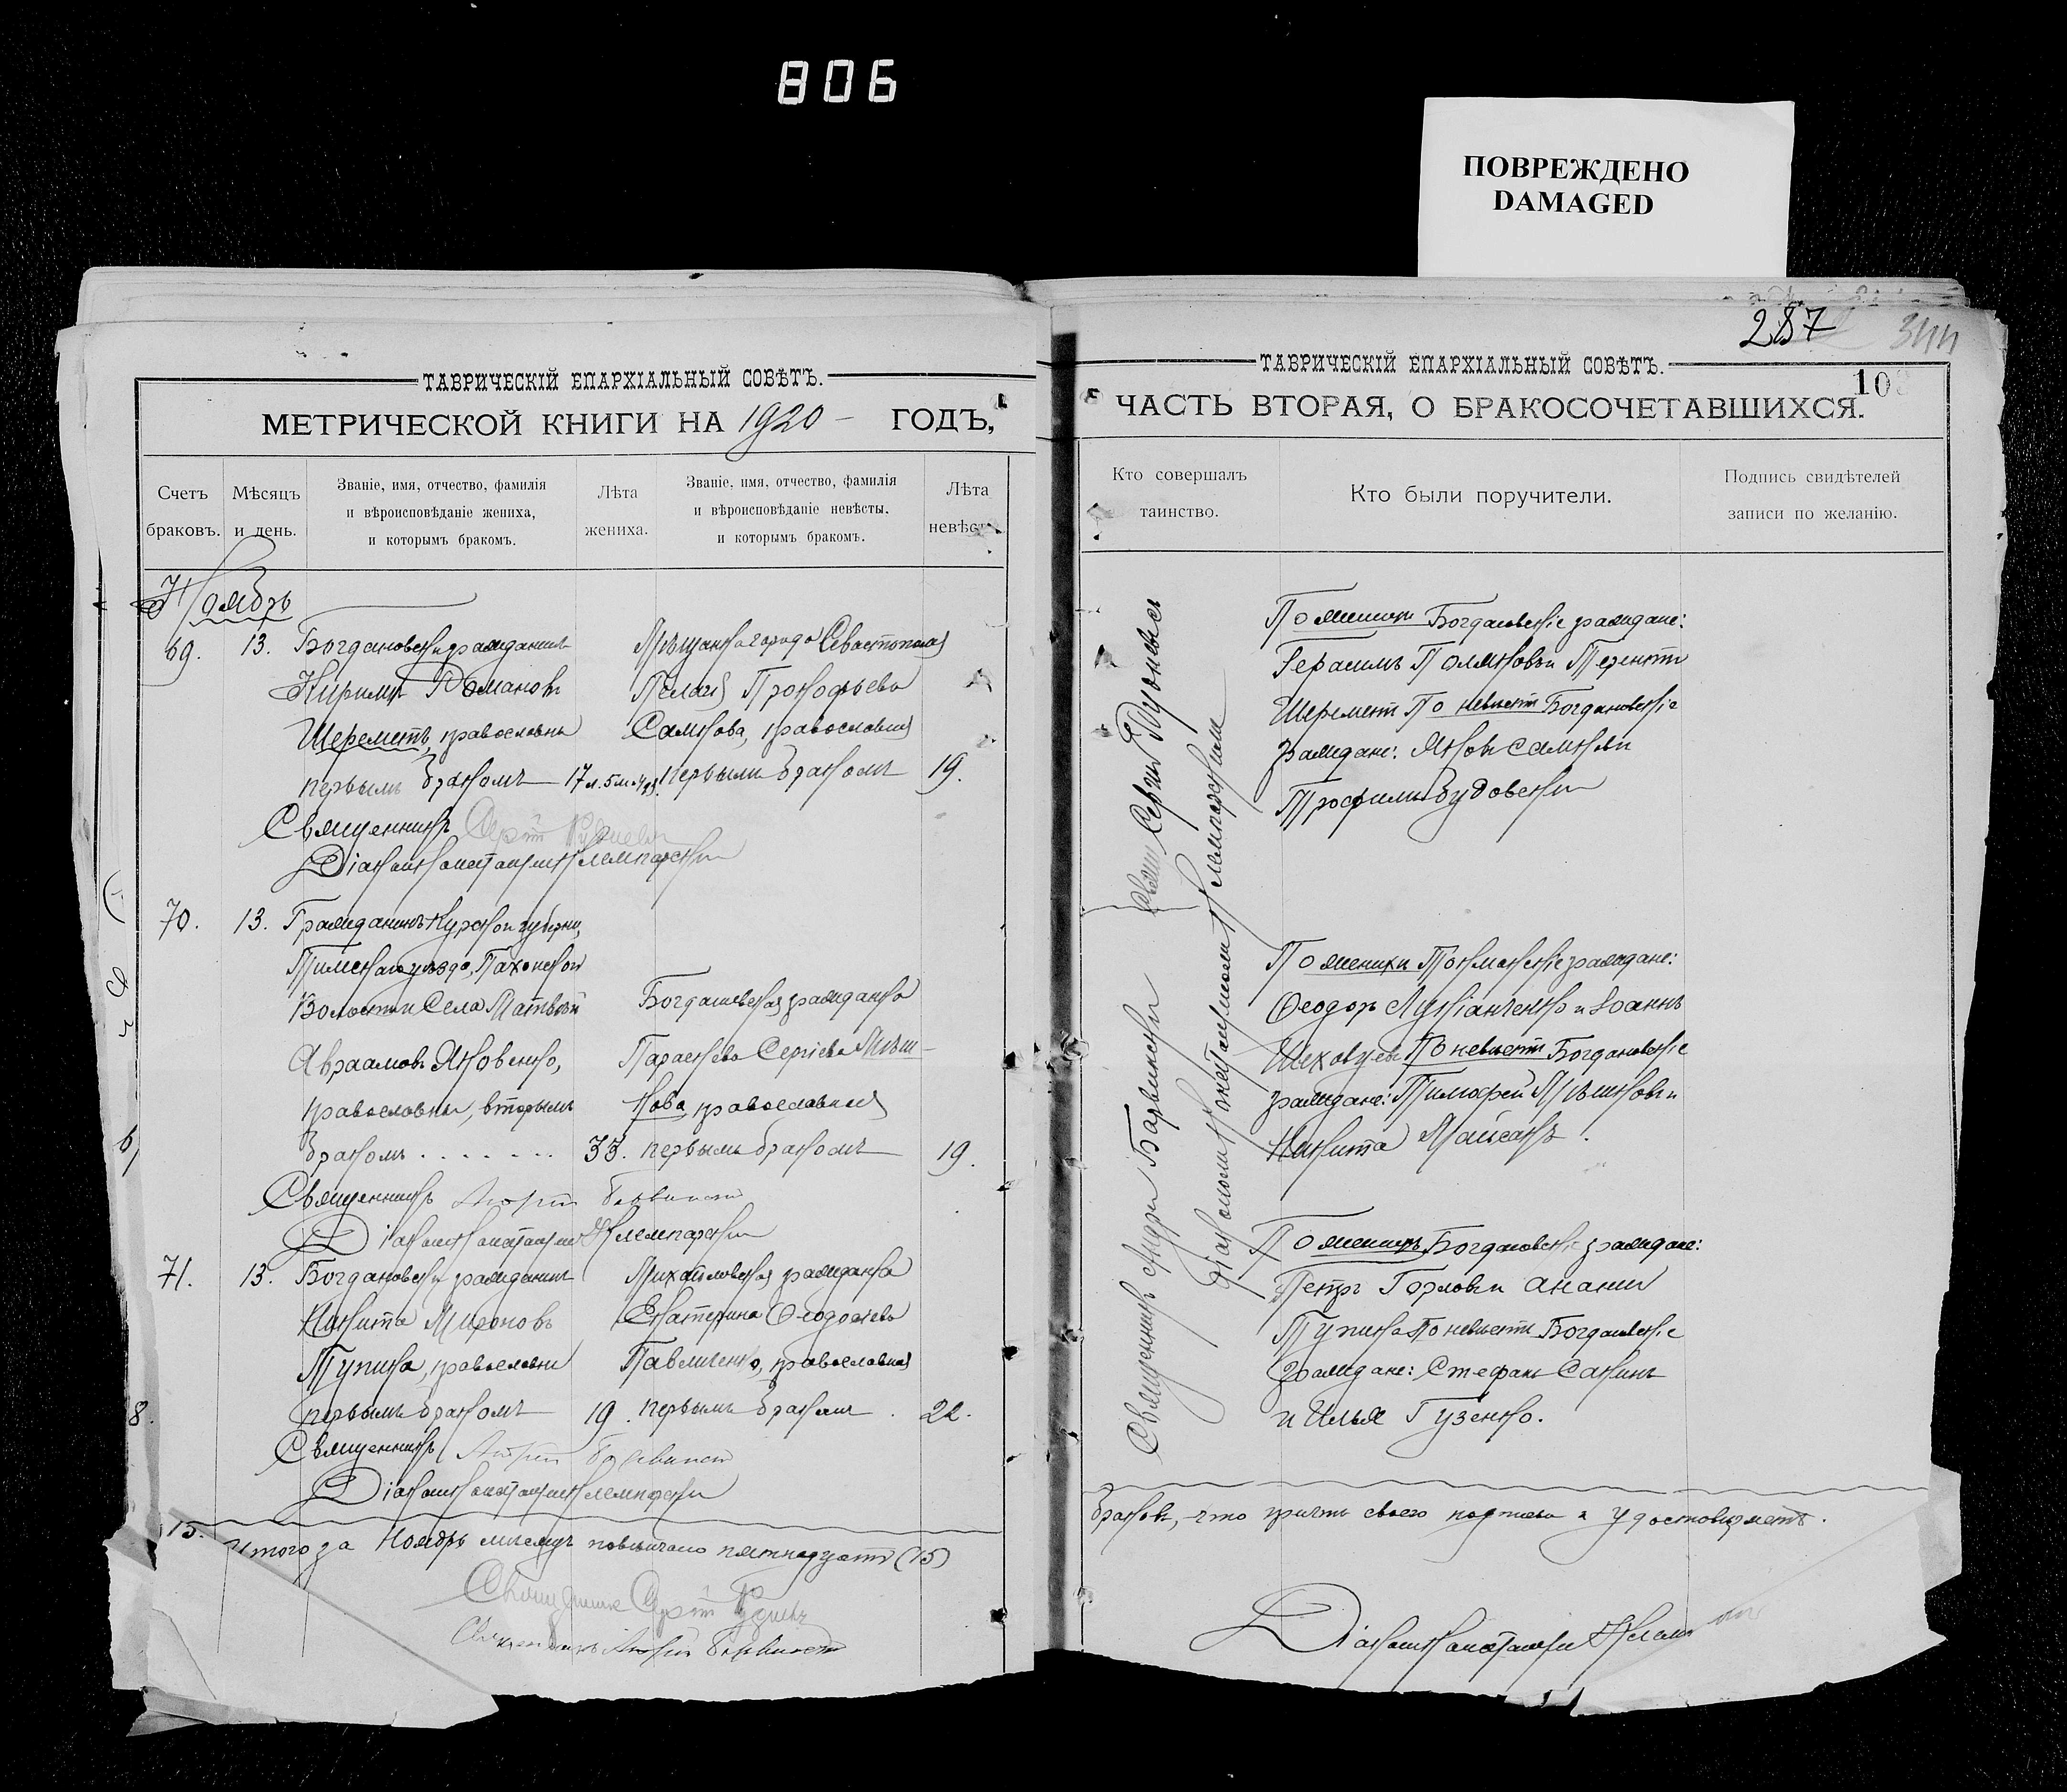 806
ПОВРЕЖДЕНО
DAMAGED
287
344
10
ТАВРИЧЕСКІЙ ЕПАРХІАЛЬНЫЙ СОВѢТЪ.
МЕТРИЧЕСКОЙ КНИГИ НА 1920 ГОДЪ,
Счетъ браковъ.
Мѣсяцъ и день.
Званіе, имя, отчество, фамилія
и вѣроисповѣданіе жениха,
и которымъ бракомъ.
Лѣта жениха.
Званіе, имя, отчество, фамилія
и вѣроисповѣданіе невѣсты.
и которымъ бракомъ.
Лѣта
Ноябрь
69. 13. Богдановскій гражданинъ
Кириллъ Романовъ
Шереметъ, православный
первымъ бракомъ 17 л. 5 м.
Мѣщанка города Севастополя
Пелагія Прокофьева
Самкова, православная
первымъ бракомъ 19.
Священникъ
Діаконъ Константинъ Клемпарскій
70. 13. Гражданинъ Курской губерніи,
Тимскаго уѣзда,
Волости и Села Матвѣй
Авраамовъ Яковенко,
православный, вторымъ
бракомъ . . . . . . . 33.
Богдановская гражданка
Параскева Сергіева Мѣш-
кова, православная
первымъ бракомъ 19.
Священникъ
Діаконъ Константинъ Клемпарскій
71. 13. Богдановскій гражданинъ
Никита Мироновъ
Тупика, православный
первымъ бракомъ 19.
Михайловская гражданка
Екатерина Ѳеодосіева
Павличенко, православная
первымъ бракомъ 22.
Священникъ
Діаконъ Константинъ Клемпарскій
15.
Итого за Ноябрь мѣсяцъ повѣнчано пятнадцать (15)
Священникъ
Священникъ
ТАВРИЧЕСКІЙ ЕПАРХІАЛЬНЫЙ СОВѢТЪ.
ЧАСТЬ ВТОРАЯ, О БРАКОСОЧЕТАВШИХСЯ.
Кто совершалъ
таинство.
Кто были поручители.
Подпись свидѣтелей
записи по желанію.
Сергій
Діакономъ Константиномъ Клемпарскимъ
Священникъ Андрей Барвинскій
По женихѣ Богдановскіе граждане:
Герасимъ Поляковъ и Терентій
Шереметъ По невѣстѣ Богдановскіе
граждане: Яковъ Самкъ и
Трофимъ Будовскій
По женихѣ Токмакскіе граждане:
Ѳеодоръ Лукіанченко и Іоаннъ
Шеховцевъ По невѣстѣ Богдановскіе
граждане: Тимофей Мѣшковъ и
Никита
По женихѣ Богдановскіе граждане:
Петръ Горловъ и Ананій
Тупика По невѣстѣ Богдановскіе
граждане: Стефанъ Сакинъ
и Илья Гузенко.
браковъ, что причтъ своего подписью и удостовѣряетъ.
Діаконъ Константинъ